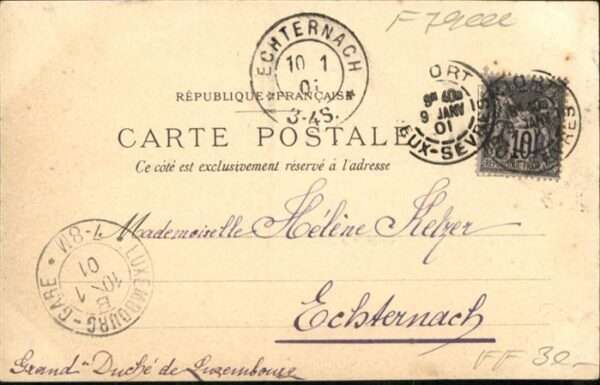 F79
ECHTERNACH
10 1
01
3-4S.
RÉPUBLIQUE FRANÇAISE
CARTE POSTALE
Ce côté est exclusivement réservé à l'adresse
ORT
9 JANV
01
EUX-SÈVRES
10
Mademoiselle Hélène
Echternach
Grand Duché de Luxembourg
LUXEMBOURG-GARE
7-8M
10-1
01
FF 30-